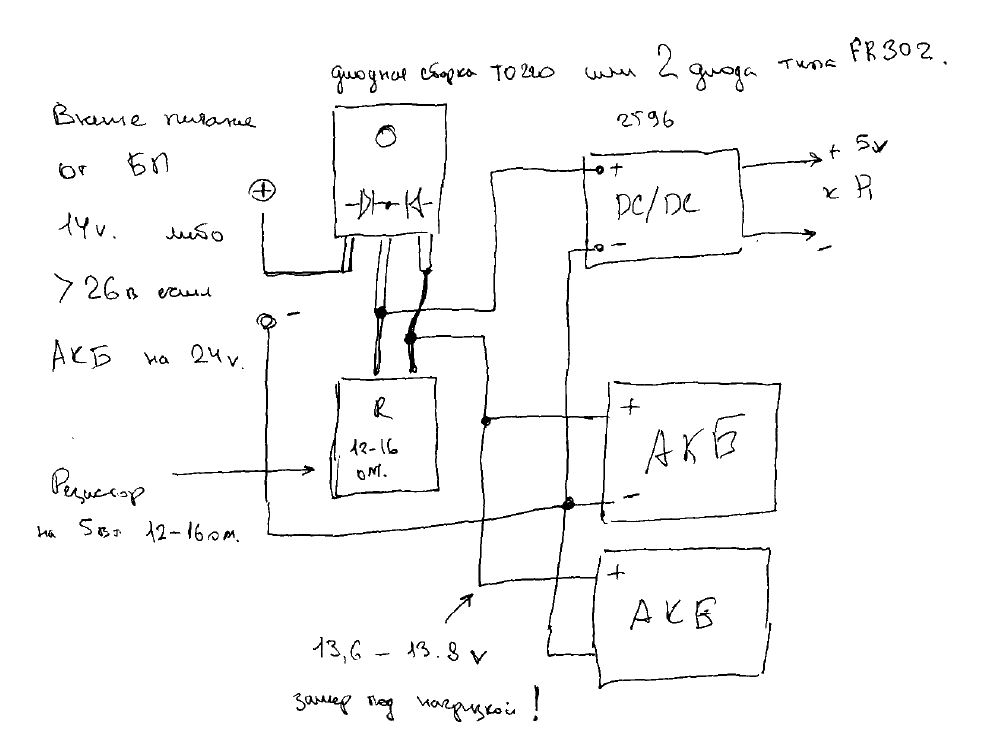 диодная сборка TO220 или 2 диода типа FR302.
Внешне питание
от БП
14v. либо
> 26в если
АКБ на 24v.
+
-
2596
+
DC/DC
-
+ 5v
к Pi
-
R
12-16
ом.
Резистор
на 5вт 12-16 ом.
+
АКБ
-
+
АКБ
13,6 - 13.8 v
замер под нагрузкой!